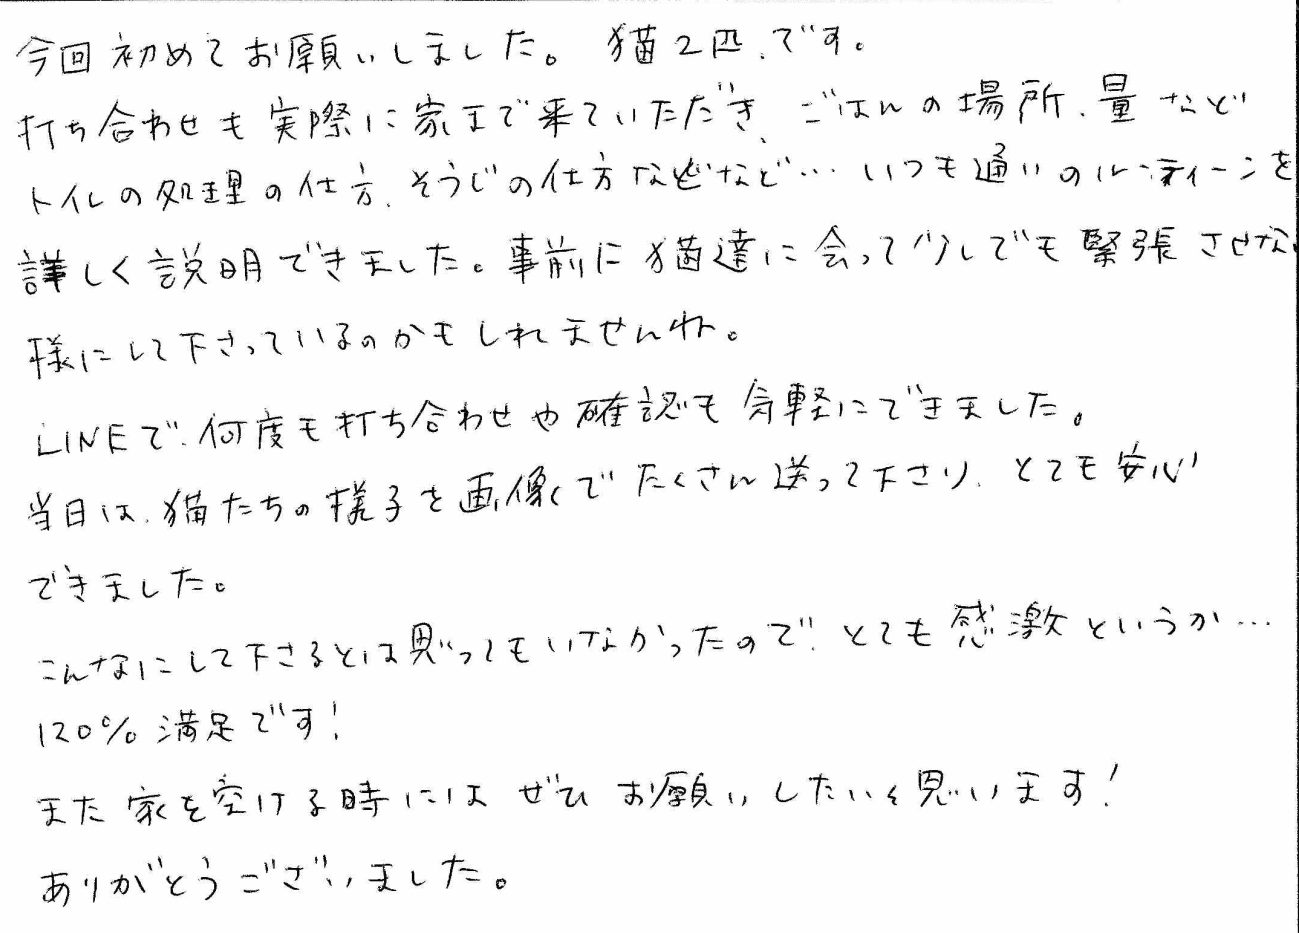 今回初めてお願いしました。猫2匹、です。
打ち合わせも実際に家まで来ていただき、ごはんの場所、量など
トイレの処理の仕方、そうじの仕方などなど…いつも通いのルーティーンを
詳しく説明できました。事前に猫達に会って少しでも緊張させない
様にして下さっているのかもしれませんね。
LINEで、何度も打ち合わせや確認も気軽にできました。
当日は、猫たちの様子を画像でたくさん送って下さり、とても安心
できました。
こんなにして下さるとは思ってもいなかったので、とても感激というか…
120%満足です!
また家を空ける時にはぜひお願いしたいと思います!
ありがとうございました。